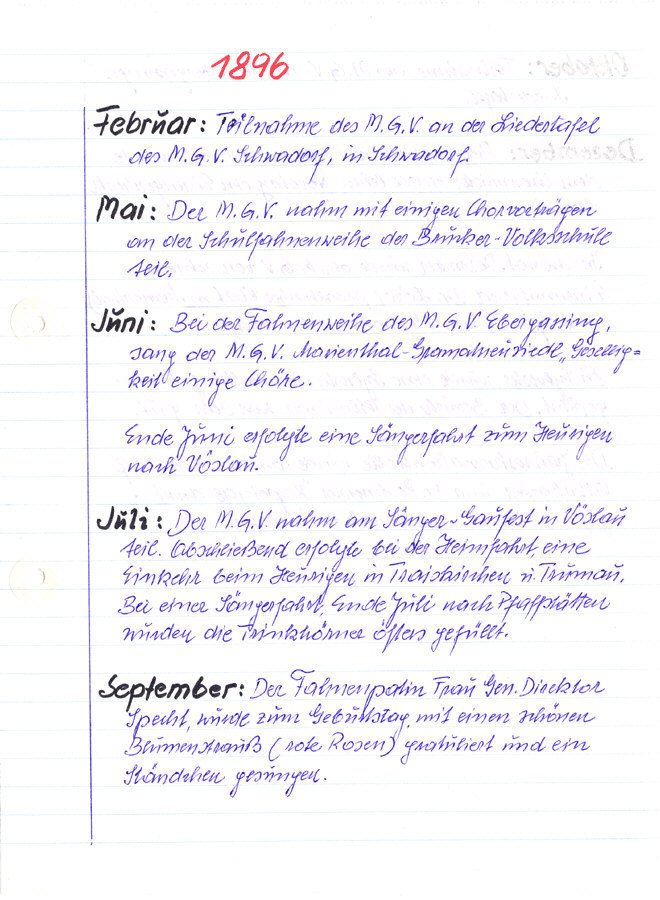 1896
Februar: Teilnahme des M.G.V. an der Liedertafel
des M.G.V. Schwadorf, in Schwadorf.
Mai: Der M.G.V. nahm mit einigen Chorvorträgen
an der Schulfahnenweihe der Brucker-Volksschule
teil.
Juni: Bei der Fahnenweihe des M.G.V. Ebergassing,
sang der M.G.V. Marienthal-Gramatneusiedl „Gesellig=
keit einige Chöre.
Ende Juni erfolgte eine Sängerfahrt zum Heurigen
nach Vöslau.
Juli: Der M.G.V. nahm am Sänger-Gaufest in Vöslau
teil. Abschließend erfolgte bei der Heimfahrt eine
Einkehr beim Heurigen in Traiskirchen u. Trumau.
Bei einer Sängerfahrt, Ende Juli nach Pfaffstätten
wurden die Trinkhörner öfters gefüllt.
September: Der Fahnenpatin Frau Gen. Direktor
Specht, wurde zum Geburtstag mit einen schönen
Blumenstrauß (rote Rosen) gratuliert und ein
Ständchen gesungen.